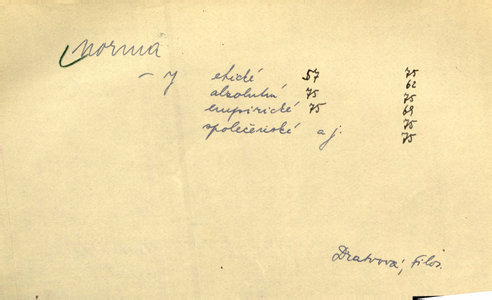 norma
– y etické 57 75
62
absolutní 75 75
empirické 75 69
společenské a j. 75
75
Dratvová, Filos.